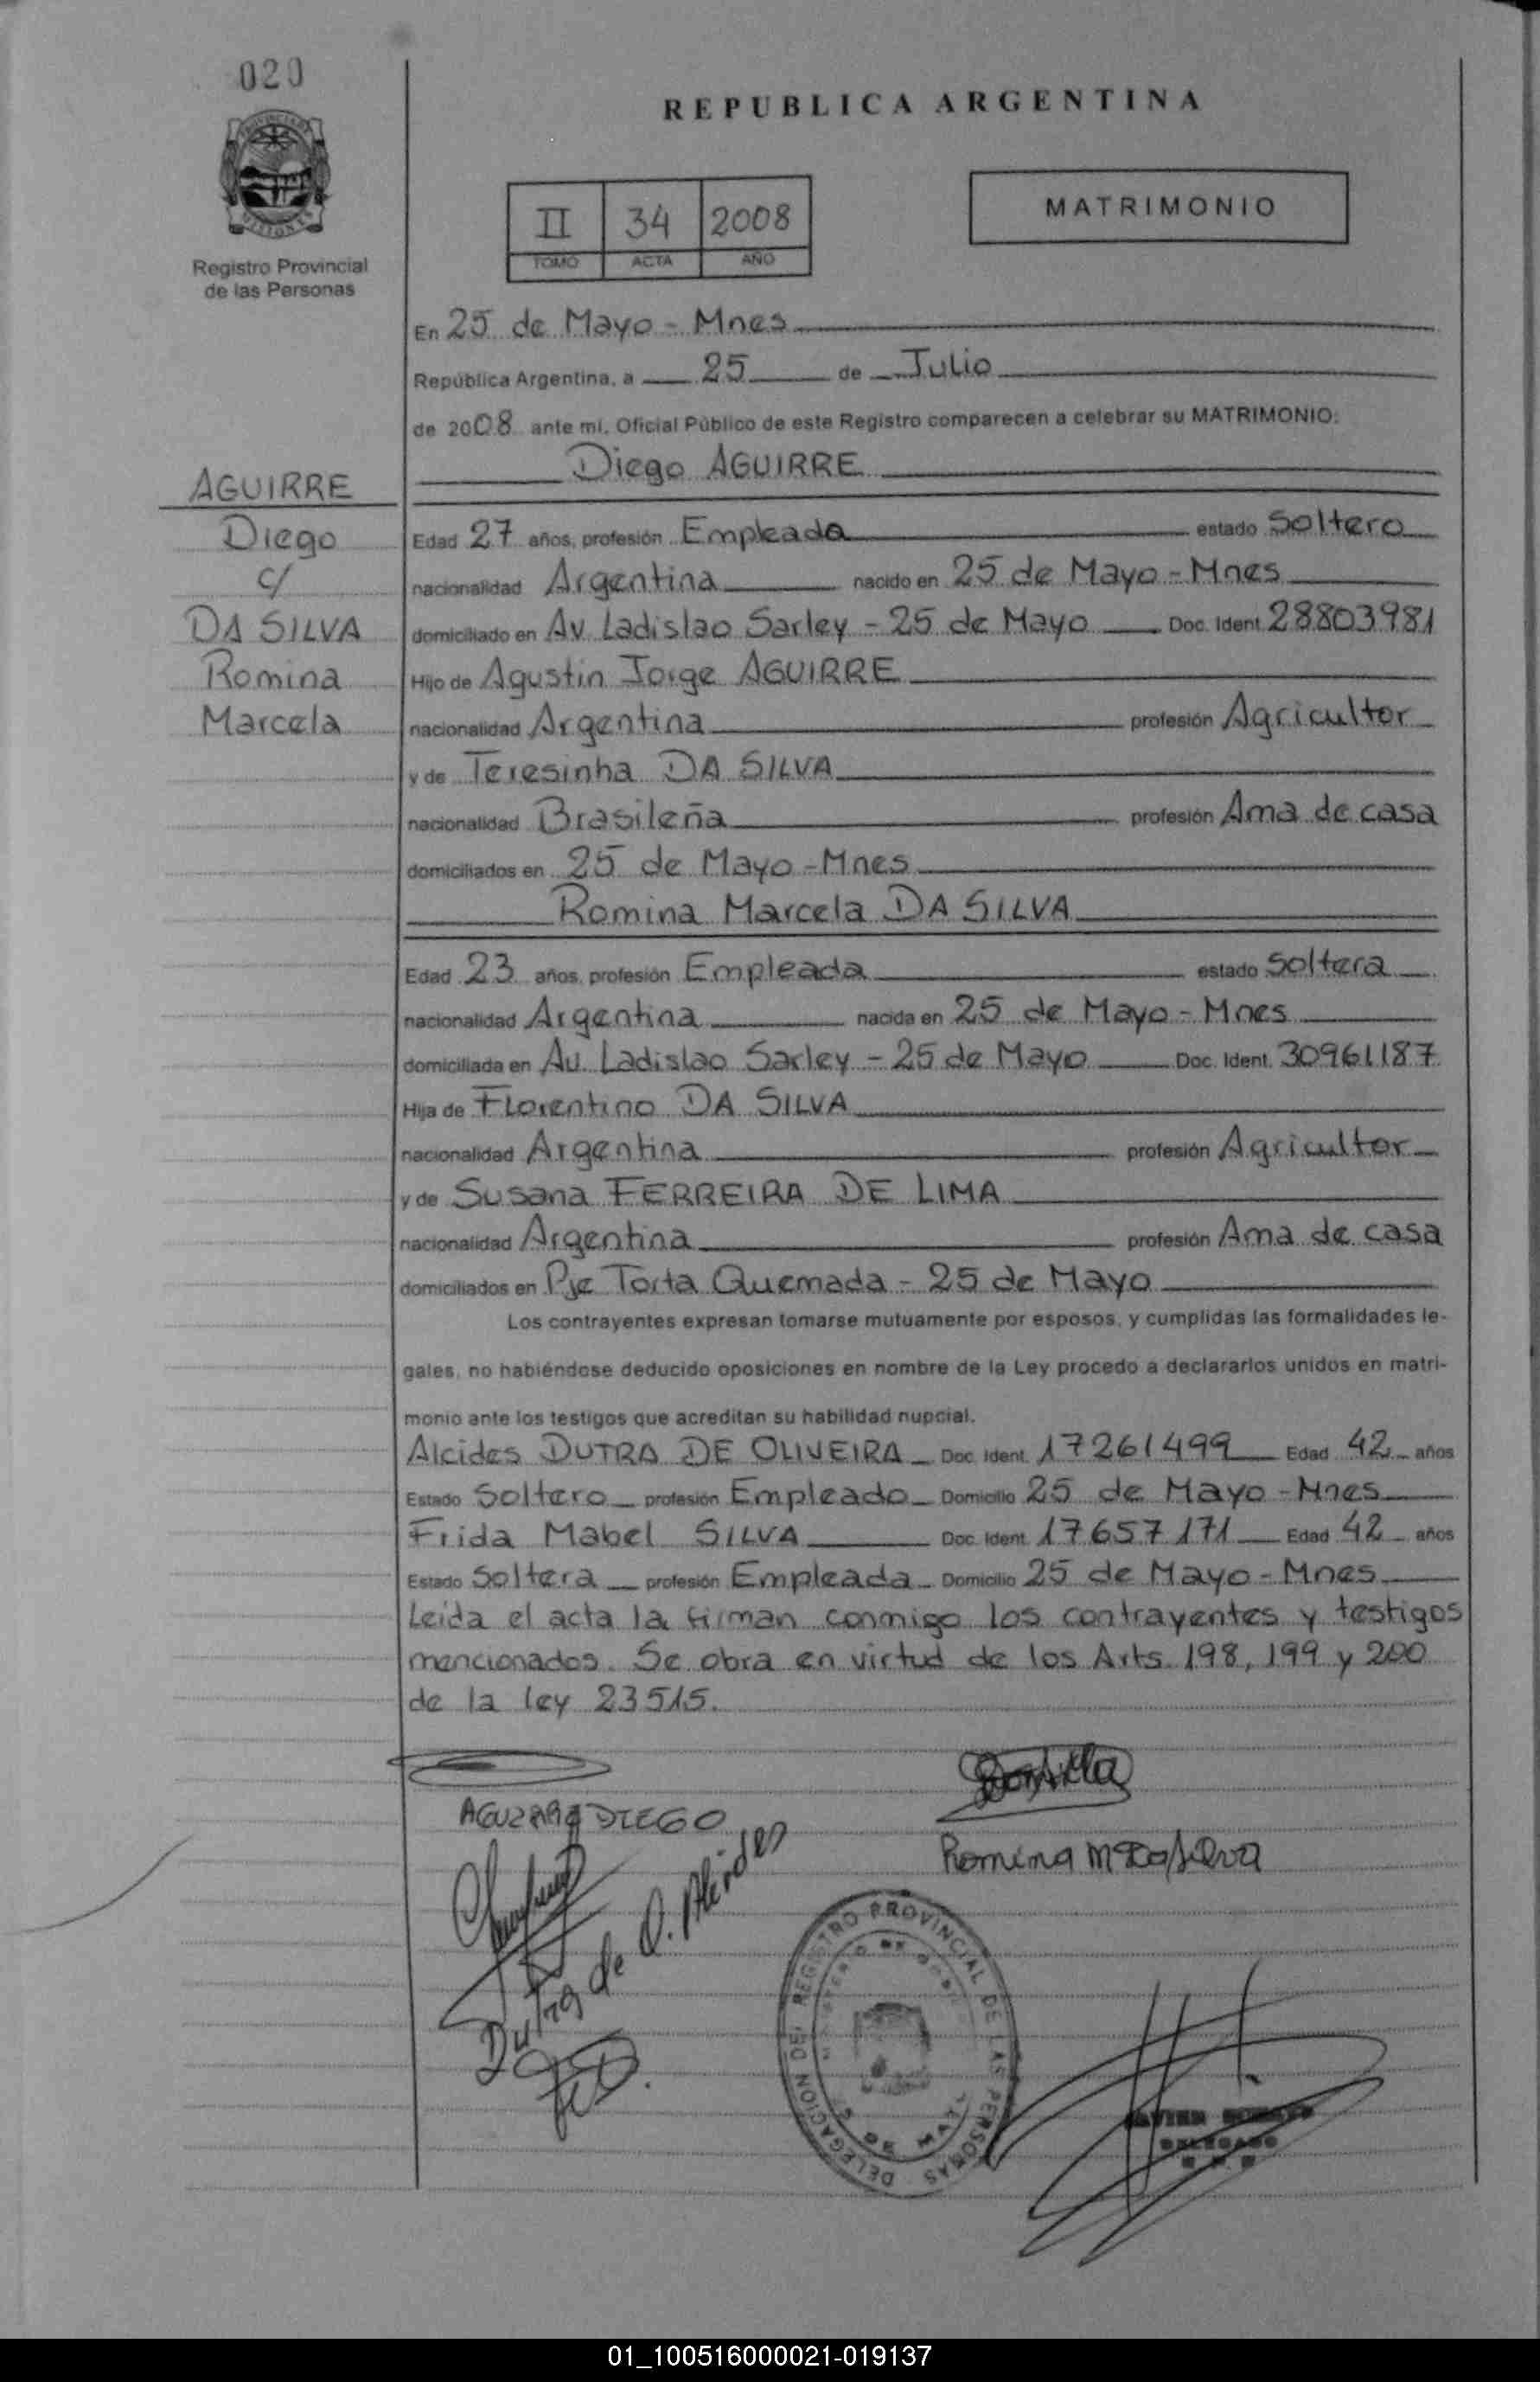 020
REPUBLICA ARGENTINA
II 34 2008
TOMO ACTA AÑO
MATRIMONIO
Registro Provincial
de las Personas
En 25 de Mayo - Mnes
República Argentina, a 25 de Julio
de 2008 ante mí, Oficial Público de este Registro comparecen a celebrar su MATRIMONIO:
Diego AGUIRRE
AGUIRRE
Diego
c/
DA SILVA
Romina
Marcela
Edad 27 años, profesión Empleado estado Soltero
nacionalidad Argentina nacido en 25 de Mayo - Mnes
domiciliado en Av Ladislao Sarley - 25 de Mayo Doc. Ident. 28803981
Hijo de Agustin Jorge AGUIRRE
nacionalidad Argentina profesión Agricultor
y de Teresinha DA SILVA
nacionalidad Brasileña profesión Ama de casa
domiciliados en 25 de Mayo - Mnes
Romina Marcela DA SILVA
Edad 23 años, profesión Empleada estado Soltera
nacionalidad Argentina nacida en 25 de Mayo - Mnes
domiciliada en Av. Ladislao Sarley - 25 de Mayo Doc. Ident. 30961187
Hija de Florentino DA SILVA
nacionalidad Argentina profesión Agricultor
y de Susana FERREIRA DE LIMA
nacionalidad Argentina profesión Ama de casa
domiciliados en Pje Torta Quemada - 25 de Mayo
Los contrayentes expresan tomarse mutuamente por esposos, y cumplidas las formalidades le-
gales, no habiéndose deducido oposiciones en nombre de la Ley procedo a declararlos unidos en matri-
monio ante los testigos que acreditan su habilidad nupcial.
Alcides DUTRA DE OLIVEIRA Doc. Ident. 17261499 Edad 42 años
Estado Soltero profesión Empleado Domicilio 25 de Mayo - Mnes
Frida Mabel SILVA Doc. Ident. 17657171 Edad 42 años
Estado Soltera profesión Empleada Domicilio 25 de Mayo - Mnes
Leida el acta la firman conmigo los contrayentes y testigos
mencionados. Se obra en virtud de los Arts 198, 199 y 200
de la ley 23515.
DIEGO
Romina M Da Silva
Dutra de O. Alcides
DELEGACION DEL REGISTRO PROVINCIAL DE LAS PERSONAS
DELEGADO
01_100516000021-019137